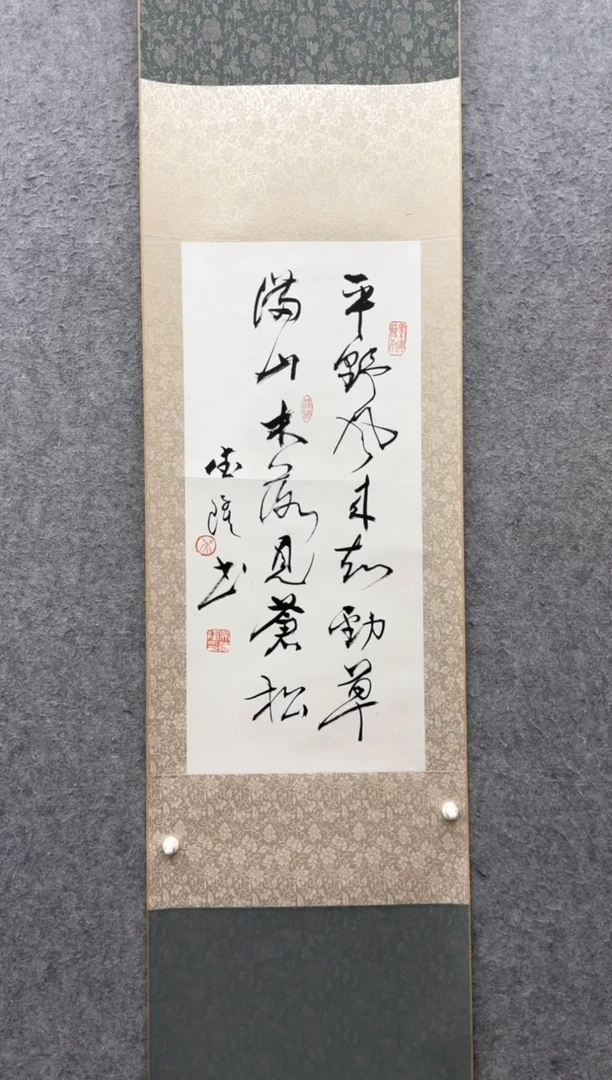 平野风来知劲草
满山木落见苍松
德隆书